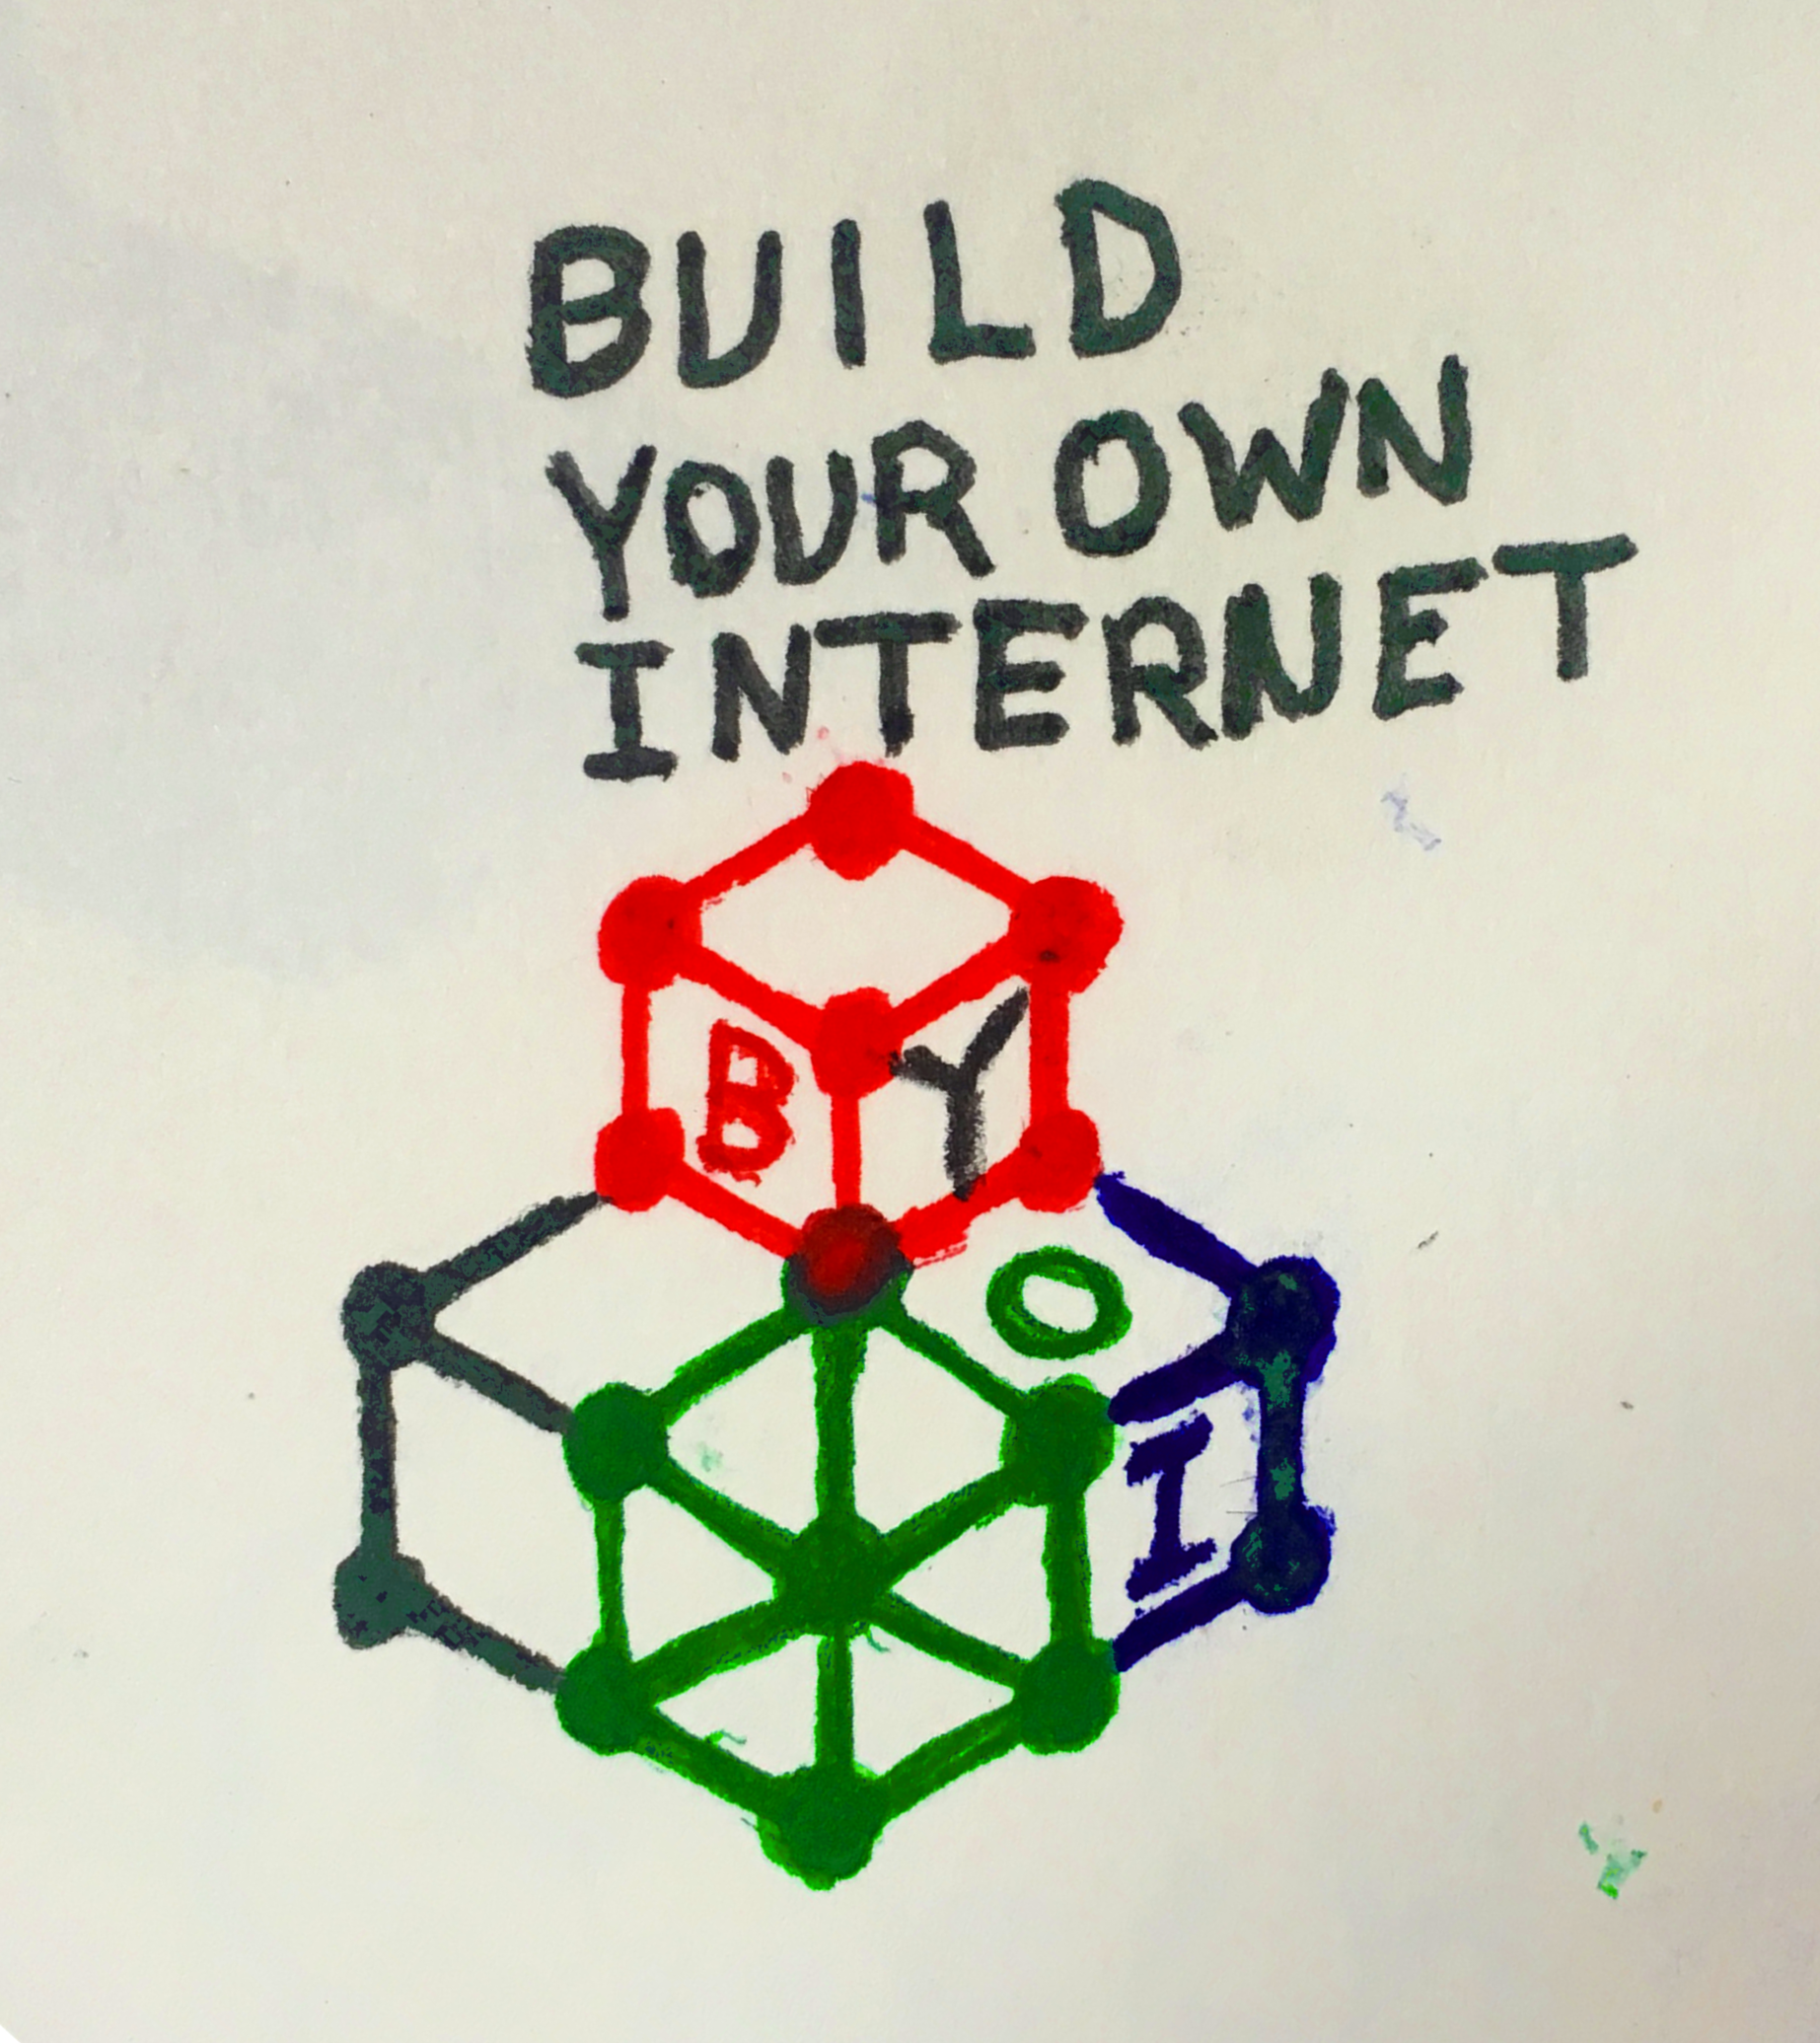 BUILD
YOUR OWN
INTERNET
B Y
O
I